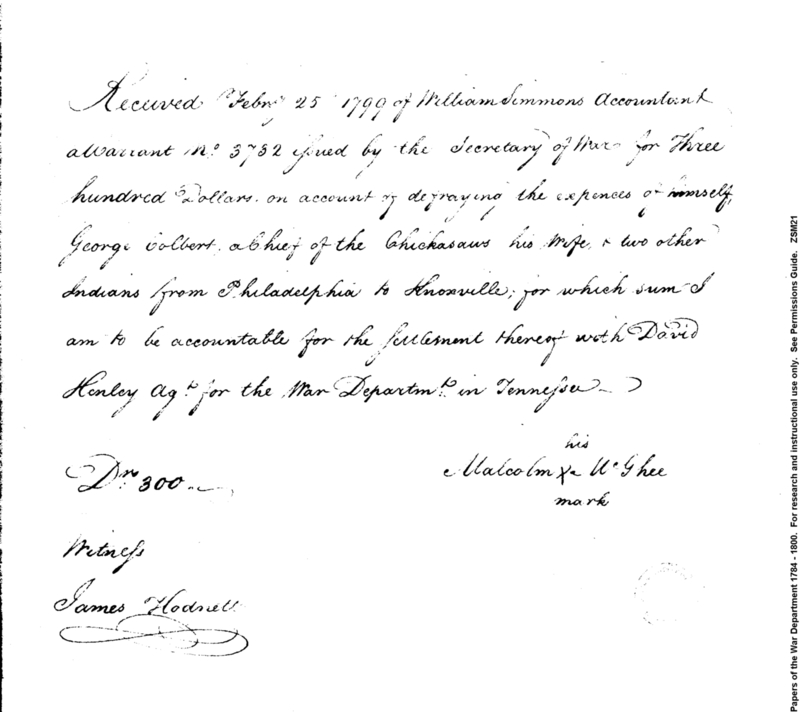 Received Febry 25 1799 of William Simmons Accountant
a Warrant No. 3732 issued by the Secretary of War for Three
hundred Dollars on account of defraying the expences of himself,
George Colbert, a Chief of the Chickasaws his Wife, & two other
Indians from Philadelphia to Knoxville; for which sum I
am to be accountable for the settlement thereof with David
Henley Agt. for the War Departmt. in Tennessee
his
Malcolm X McGhee
mark
Drs 300
Witness
James Hodnett
Papers of the War Department 1784 - 1800. For research and instructional use only. See Permissions Guide. ZSM21